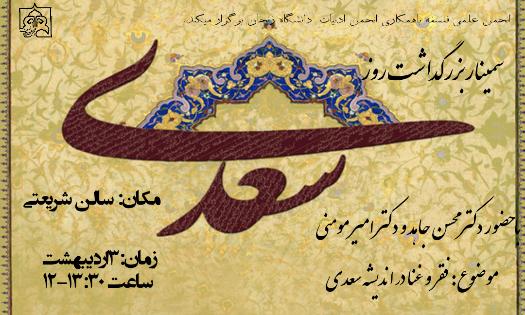 انجمن علمی فلسفه باهمکاری انجمن ادبیات دانشگاه زنجان برگزار میکند.
سمینار بزرگداشت روز
سعدی
با حضور دکتر محسن جاهد و دکتر امیر مومنی
موضوع: فقر و غنا در اندیشه سعدی
مکان: سالن شریعتی
زمان: ۳اردیبهشت
ساعت ۱۳:۳۰-۱۲